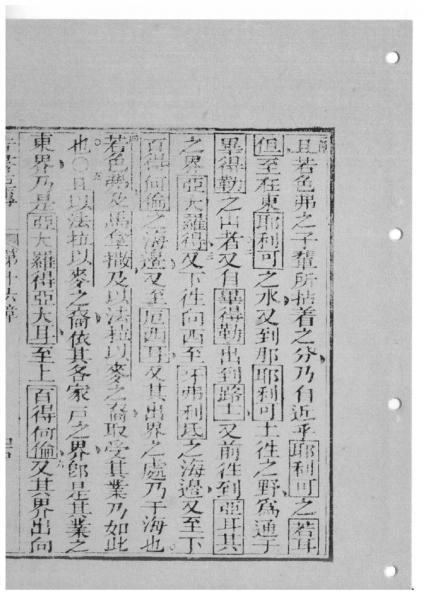 且若色弗之子輩所拈着之分乃自近乎耶利可之若耳
但至在東耶利可之水又到那耶利可上徃之野爲通于
畢得勒之山者又自畢得勒出到路士又前徃到亞耳其
之界亞大羅得又下徃向西至牙弗利氏之海邊又至下
百得何倫之海邊又至厄西耳又其出界之處乃于海也
若色弗及馬拿撒及以法拉以麥之裔取受其業乃如此
也○且以法拉以麥之裔依其各家戶之界卽是其業之
東界乃是亞大羅得亞大耳至上百得何倫又其界出向
第十六章